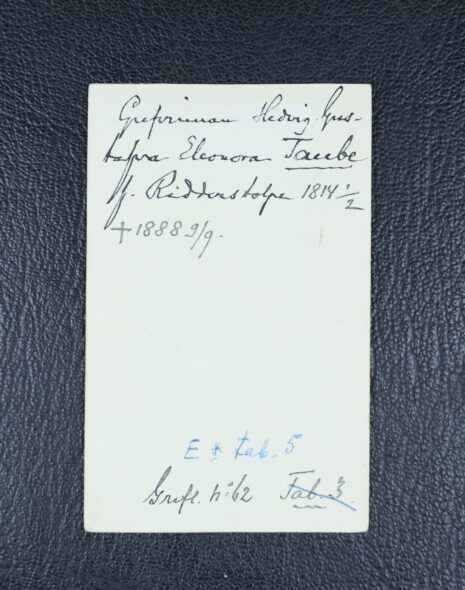 Grefvinnan Hedvig Gus-
tafva Eleonora Taube
f. Ridderstolpe 1814 1/2
+ 1888 9/9.
E * tab. 5
Grefl. No 62 Tab. 3.